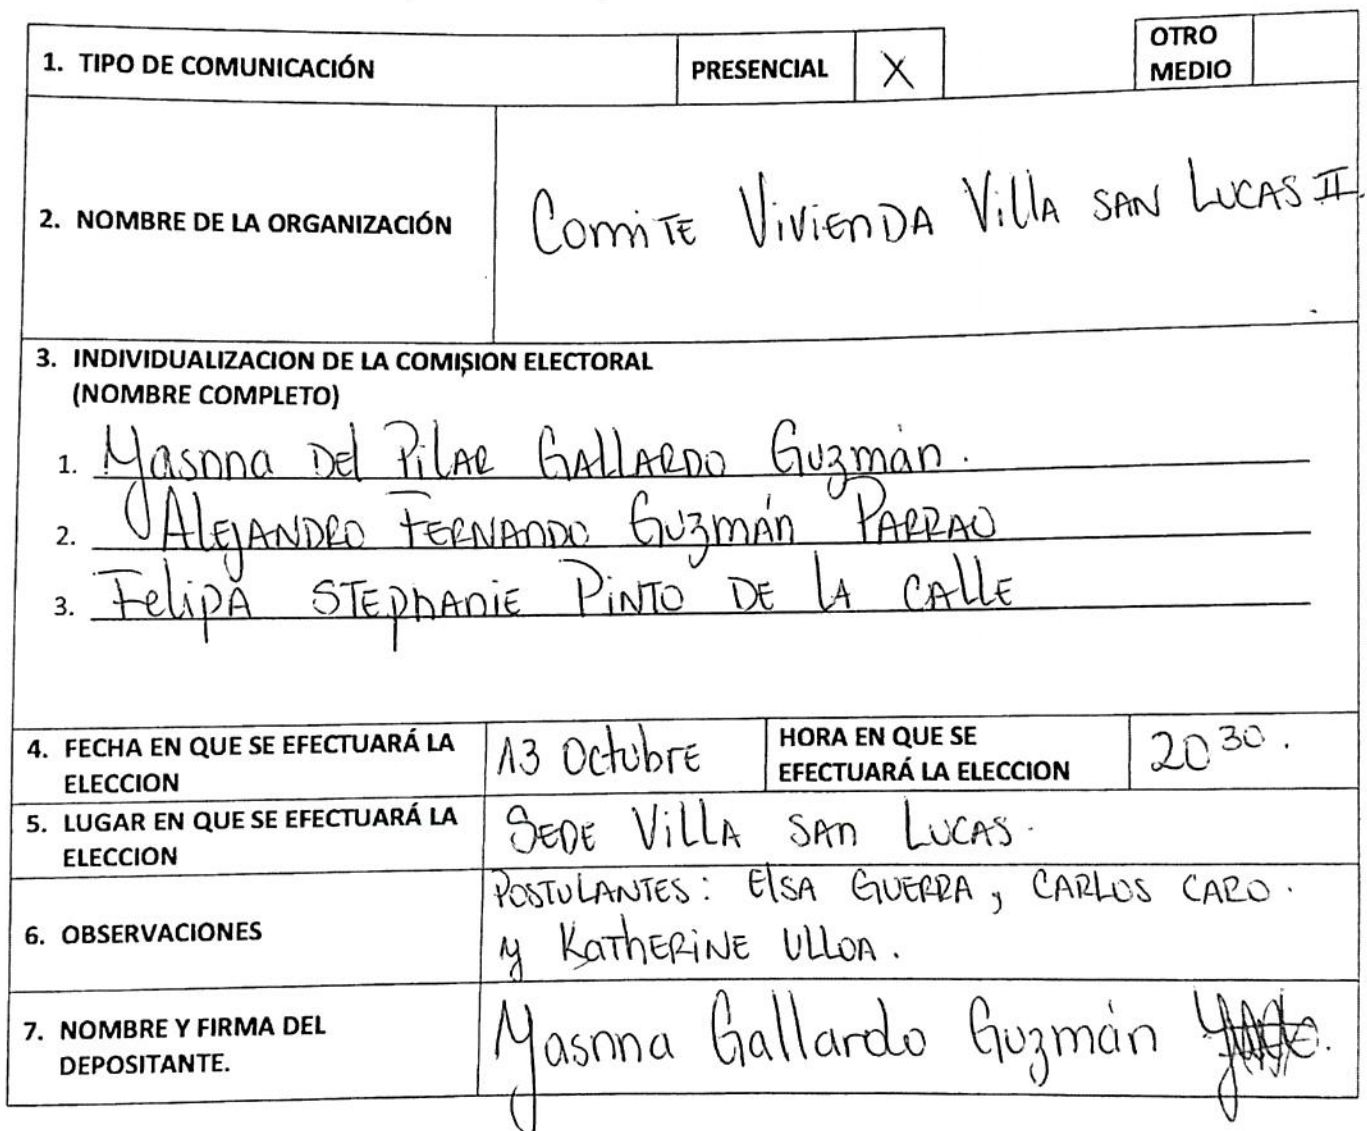 1. TIPO DE COMUNICACIÓN PRESENCIAL X OTRO MEDIO
2. NOMBRE DE LA ORGANIZACIÓN Comite Vivienda Villa San Lucas II.
3. INDIVIDUALIZACION DE LA COMISION ELECTORAL
(NOMBRE COMPLETO)
1. Yasnna Del Pilar Gallardo Guzmán.
2. Alejandro Fernando Guzmán Parrao
3. Felipa Stephanie Pinto De la Calle
4. FECHA EN QUE SE EFECTUARÁ LA ELECCION 13 Octubre HORA EN QUE SE EFECTUARÁ LA ELECCION 20 30.
5. LUGAR EN QUE SE EFECTUARÁ LA ELECCION Sede Villa San Lucas.
6. OBSERVACIONES Postulantes: Elsa Guerra, Carlos Caro.
y Katherine Ulloa.
7. NOMBRE Y FIRMA DEL DEPOSITANTE. Yasnna Gallardo Guzmán